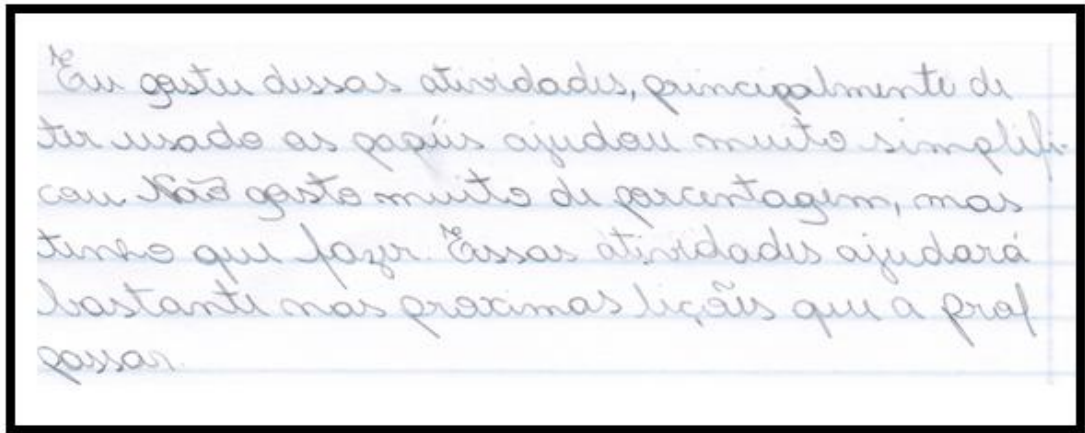 Eu gostei dessas atividades, principalmente de
ter usado os papéis ajudou muito simplifi-
cou. Não gosto muito de porcentagem, mas
tenho que fazer. Essas atividades ajudará
bastante nas proximas lições que a prof
passar.